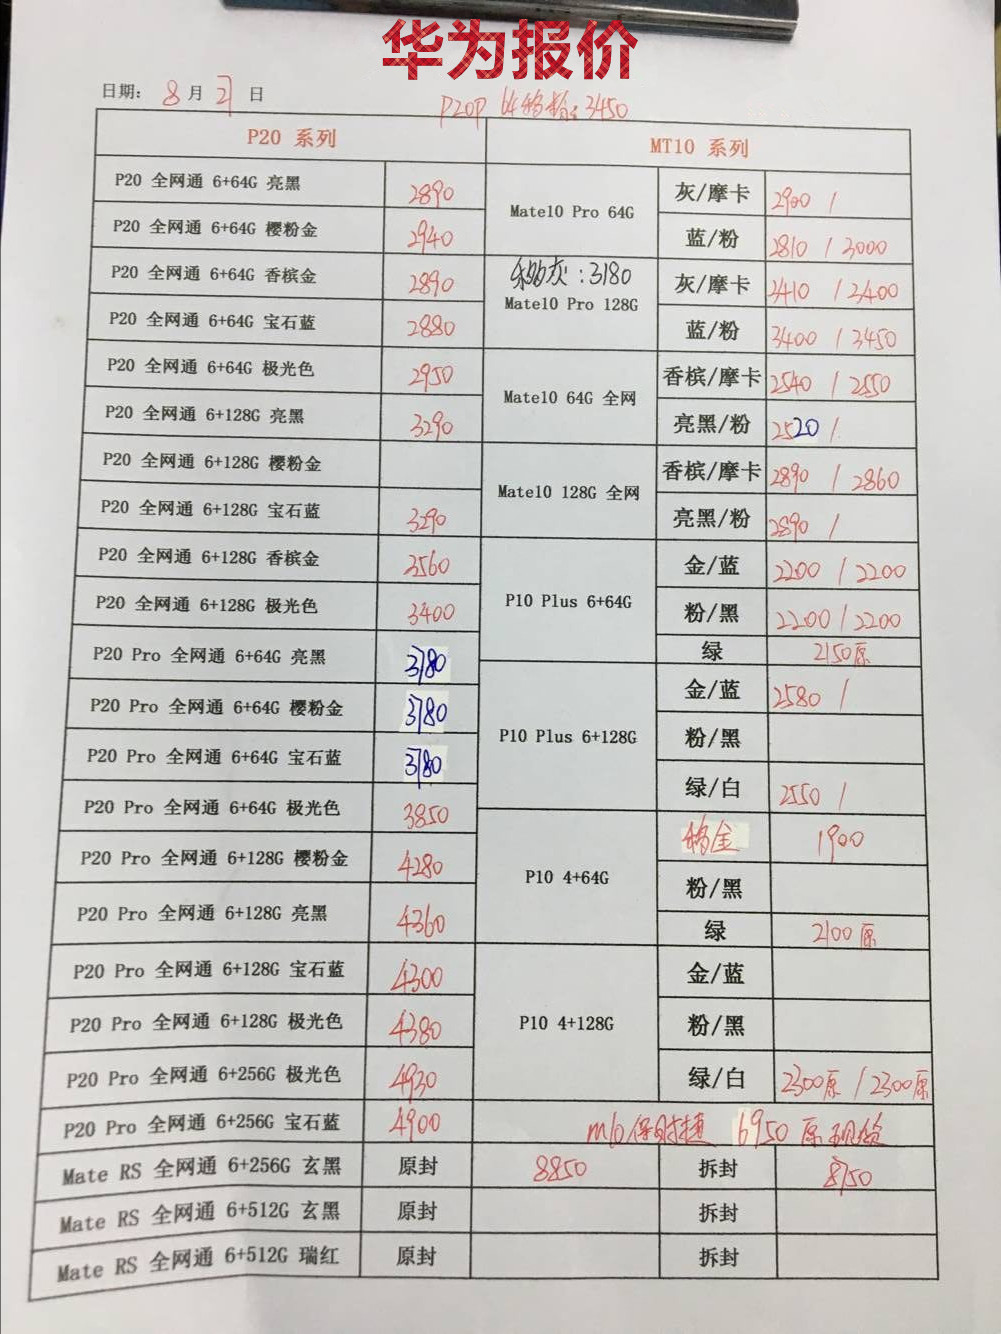 华为报价
日期: 8 月 21 日
P20P 64 3450
P20 系列 MT10 系列
P20 全网通 6+64G 亮黑 2890
P20 全网通 6+64G 樱粉金 2940
P20 全网通 6+64G 香槟金 2890
P20 全网通 6+64G 宝石蓝 2880
P20 全网通 6+64G 极光色 2950
P20 全网通 6+128G 亮黑 3290
P20 全网通 6+128G 樱粉金
P20 全网通 6+128G 宝石蓝 3290
P20 全网通 6+128G 香槟金 3560
P20 全网通 6+128G 极光色 3400
P20 Pro 全网通 6+64G 亮黑 3780
P20 Pro 全网通 6+64G 樱粉金 3780
P20 Pro 全网通 6+64G 宝石蓝 3780
P20 Pro 全网通 6+64G 极光色 3850
P20 Pro 全网通 6+128G 樱粉金 4280
P20 Pro 全网通 6+128G 亮黑 4360
P20 Pro 全网通 6+128G 宝石蓝 4300
P20 Pro 全网通 6+128G 极光色 4380
P20 Pro 全网通 6+256G 极光色 4930
P20 Pro 全网通 6+256G 宝石蓝 4900
Mate10 Pro 64G 灰/摩卡 2900 /
蓝/粉 2810 / 3000
灰:3180
Mate10 Pro 128G 灰/摩卡 3410 / 3400
蓝/粉 3400 / 3450
Mate10 64G 全网 香槟/摩卡 2540 / 2550
亮黑/粉 2520 /
Mate10 128G 全网 香槟/摩卡 2890 / 2860
亮黑/粉 2890 /
P10 Plus 6+64G 金/蓝 2200 / 2200
粉/黑 2200 / 2200
绿 2150原
P10 Plus 6+128G 金/蓝 2580 /
粉/黑
绿/白 2550 /
P10 4+64G 金 1900
粉/黑
绿 2100原
P10 4+128G 金/蓝
粉/黑
绿/白 2300原 / 2300原
m10保时捷 6950 原
Mate RS 全网通 6+256G 玄黑 原封 8850 拆封 8750
Mate RS 全网通 6+512G 玄黑 原封 拆封
Mate RS 全网通 6+512G 瑞红 原封 拆封